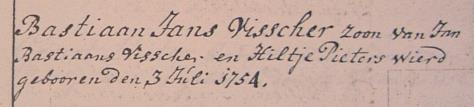 Bastiaan Jans Visscher zoon van Jan
Bastiaans Visscher en Hiltje Pieters wierd
gebooren den 3 Juli 1754.